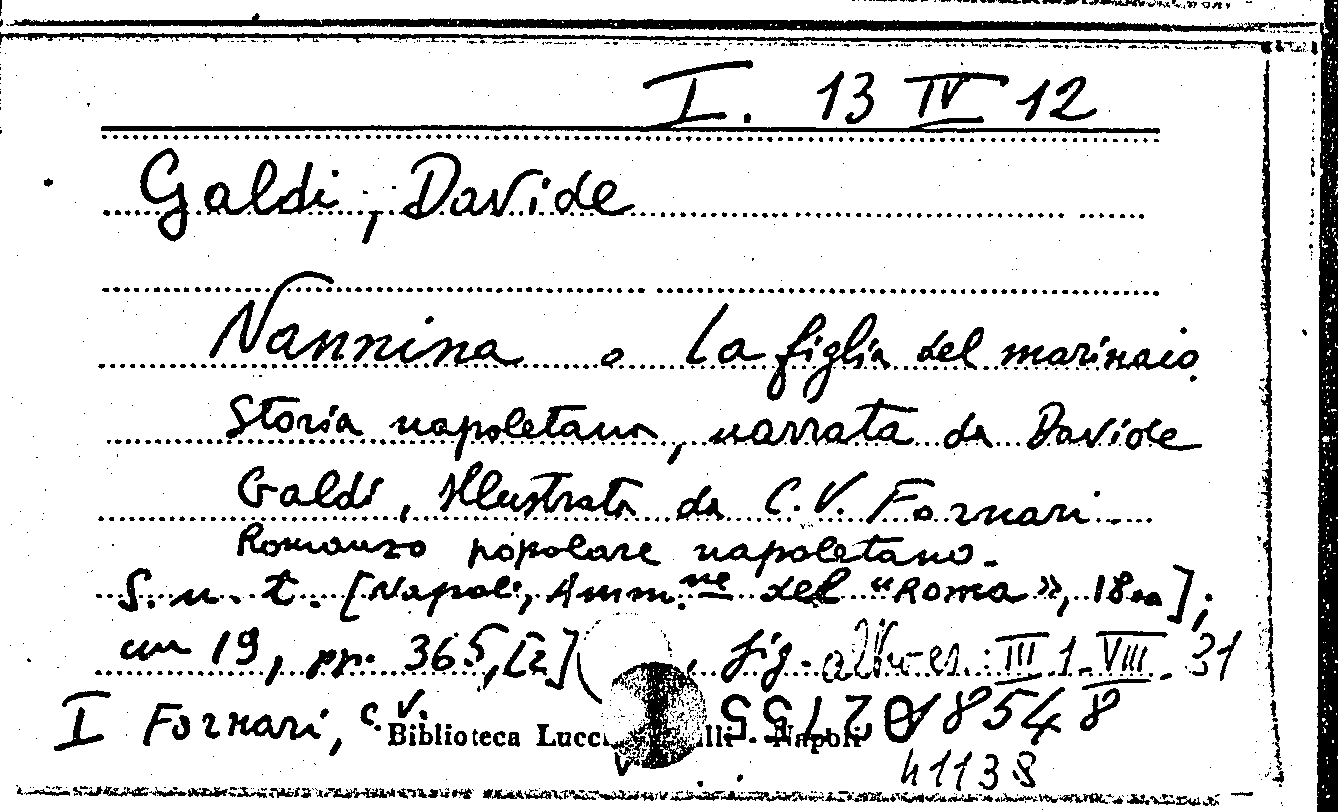 I. 13 IV 12
Galdi, Davide
Nannina o La figlia del marinaio.
Storia napoletana, narrata da Davide
Galdi, illustrata da C.V. Fornari.
Romanzo popolare napoletano.
S. n. t. [Napoli, Amm.ne del "Roma", 18..];
cm 19, pp. 365, [2] , fig. altro es.: III 1. VIII. 31
I Fornari, C.V.
Biblioteca Lucchesi Palli - Napoli
018548
41138